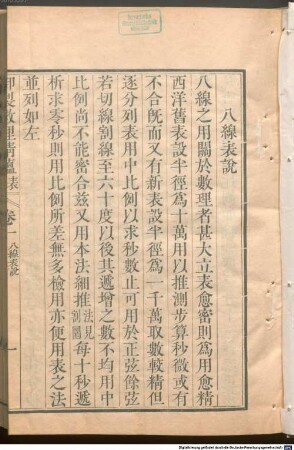 八線表說
八線之用關於數理者甚大立表愈密則爲用愈精
西洋舊表設半徑爲十萬用以推測步算秒微或有
不合旣而又有新表設半徑爲一千萬取數較精但
逐分列表用中比例以求秒數止可用於正弦餘弦
若切線割線至六十度以後其遞增之數不均用中
比例尚不能密合兹又用本法細推法見割圜每十秒遞
析求零秒則用比例所差無多檢用亦便用表之法
並列如左
御製數理精蘊表 卷一 八線表說 一